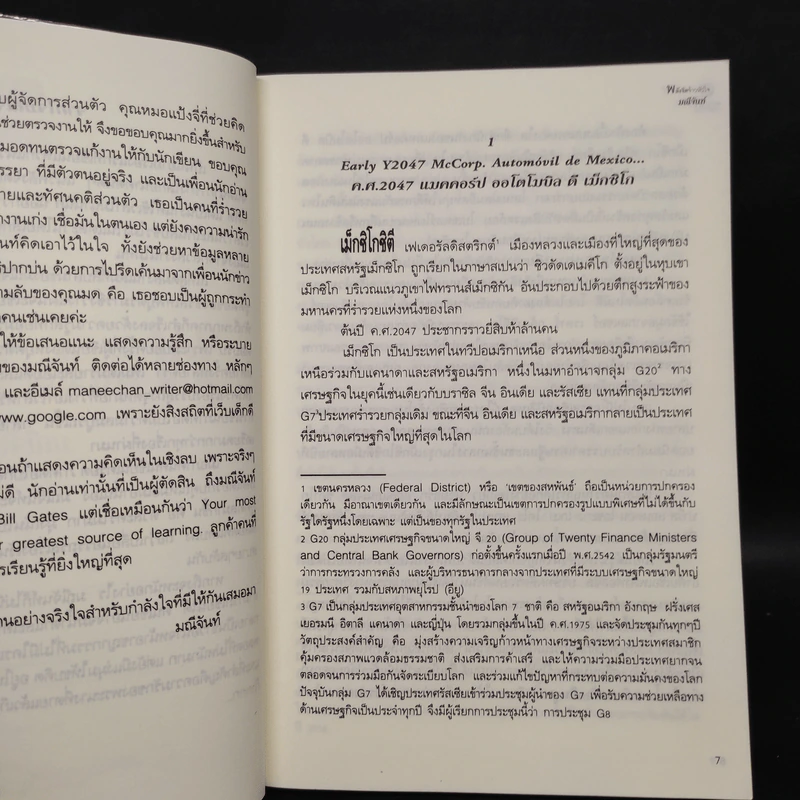 บผู้จัดการส่วนตัว คุณหมอแป้งจี่ที่ช่วยคิด
นช่วยตรวจงานให้ จึงขอขอบคุณมากยิ่งขึ้นสำหรับ
มอดทนตรวจแก้งานให้กับนักเขียน ขอบคุณ
รรยา ที่มีตัวตนอยู่จริง และเป็นเพื่อนนักอ่าน
ายและทัศนคติส่วนตัว เธอเป็นคนที่ร่ำรวย
างานเก่ง เชื่อมั่นในตนเอง แต่ยังคงความน่ารัก
นท์คิดเอาไว้ในใจ ทั้งยังช่วยหาข้อมูลหลาย
ร์ปากบ่น ด้วยการไปรีดเค้นมาจากเพื่อนนักข่าว
ามลับของคุณมด คือ เธอชอบเป็นผู้ถูกกระทำ
าคนเช่นเคยค่ะ
ให้ข้อเสนอแนะ แสดงความรู้สึก หรือระบาย
ขของมณีจันท์ ติดต่อได้หลายช่องทาง หลักๆ
และอีเมล์ maneechan_writer@hotmail.com
ww.google.com เพราะยังสิงสถิตที่เว็บเด็กดี
อนถ้าแสดงความคิดเห็นในเชิงลบ เพราะจริงๆ
ม่ดี นักอ่านเท่านั้นที่เป็นผู้ตัดสิน ถึงมณีจันท์
Bill Gates แต่เชื่อเหมือนกันว่า Your most
r greatest source of learning. ลูกค้าคนที่
ารเรียนรู้ที่ยิ่งใหญ่ที่สุด
านอย่างจริงใจสำหรับกำลังใจที่มีให้กันเสมอมา
มณีจันท์
มณีจันท์
1
Early Y2047 McCorp. Automóvil de Mexico...
ค.ศ.2047 แมคคอร์ป ออโตโมบิล ดี เม็กซิโก
เม็กซิโกซิตี เฟเดอรัลดิสตริกต์1 เมืองหลวงและเมืองที่ใหญ่ที่สุดของ
ประเทศสหรัฐเม็กซิโก ถูกเรียกในภาษาสเปนว่า ซิวดัดเดเมคีโก ตั้งอยู่ในหุบเขา
เม็กซิโก บริเวณแนวภูเขาไฟทรานส์เม็กซิกัน อันประกอบไปด้วยตึกสูงระฟ้าของ
มหานครที่ร่ำรวยแห่งหนึ่งของโลก
ต้นปี ค.ศ.2047 ประชากรราวยี่สิบห้าล้านคน
เม็กซิโก เป็นประเทศในทวีปอเมริกาเหนือ ส่วนหนึ่งของภูมิภาคอเมริกา
เหนือร่วมกับแคนาดาและสหรัฐอเมริกา หนึ่งในมหาอำนาจกลุ่ม G202 ทาง
เศรษฐกิจในยุคนี้เช่นเดียวกับบราซิล จีน อินเดีย และรัสเซีย แทนที่กลุ่มเศรษฐกิจ
G73ประเทศร่ำรวยกลุ่มเดิม ขณะที่จีน อินเดีย และสหรัฐอเมริกากลายเป็นประเทศ
ที่มีขนาดเศรษฐกิจใหญ่ที่สุดในโลก
1 เขตนครหลวง (Federal District) หรือ 'เขตของสหพันธ์' ถือเป็นหน่วยการปกครอง
เดียวกัน มีอาณาเขตเดียวกัน และมีลักษณะเป็นเขตการปกครองรูปแบบพิเศษที่ไม่ได้ขึ้นกับ
รัฐใดรัฐหนึ่งโดยเฉพาะ แต่เป็นของทุกรัฐในประเทศ
2 G20 กลุ่มประเทศเศรษฐกิจขนาดใหญ่ จี 20 (Group of Twenty Finance Ministers
and Central Bank Governors) ก่อตั้งขึ้นครั้งแรกเมื่อปี พ.ศ.2542 เป็นกลุ่มรัฐมนตรี
ว่าการกระทรวงการคลัง และผู้บริหารธนาคารกลางจากประเทศที่มีระบบเศรษฐกิจขนาดใหญ่
19 ประเทศ รวมกับสหภาพยุโรป (อียู)
3 G7 เป็นกลุ่มประเทศอุตสาหกรรมชั้นนำของโลก 7 ชาติ คือ สหรัฐอเมริกา อังกฤษ ฝรั่งเศส
เยอรมนี อิตาลี แคนาดา และญี่ปุ่น โดยรวมกลุ่มขึ้นในปี ค.ศ.1975 และจัดประชุมกันทุกๆปี
วัตถุประสงค์สำคัญ คือ มุ่งสร้างความเจริญก้าวหน้าทางเศรษฐกิจระหว่างประเทศสมาชิก
คุ้มครองสภาพแวดล้อมธรรมชาติ ส่งเสริมการค้าเสรี และให้ความร่วมมือประเทศยากจน
ตลอดจนการร่วมมือกันจัดระเบียบโลก และร่วมแก้ไขปัญหาที่กระทบต่อความมั่นคงของโลก
ปัจจุบันกลุ่ม G7 ได้เชิญประเทศรัสเซียเข้าร่วมประชุมผู้นำของ G7 เพื่อรับความช่วยเหลือทาง
ด้านเศรษฐกิจเป็นประจำทุกปี จึงมีผู้เรียกการประชุมนี้ว่า การประชุม G8
7